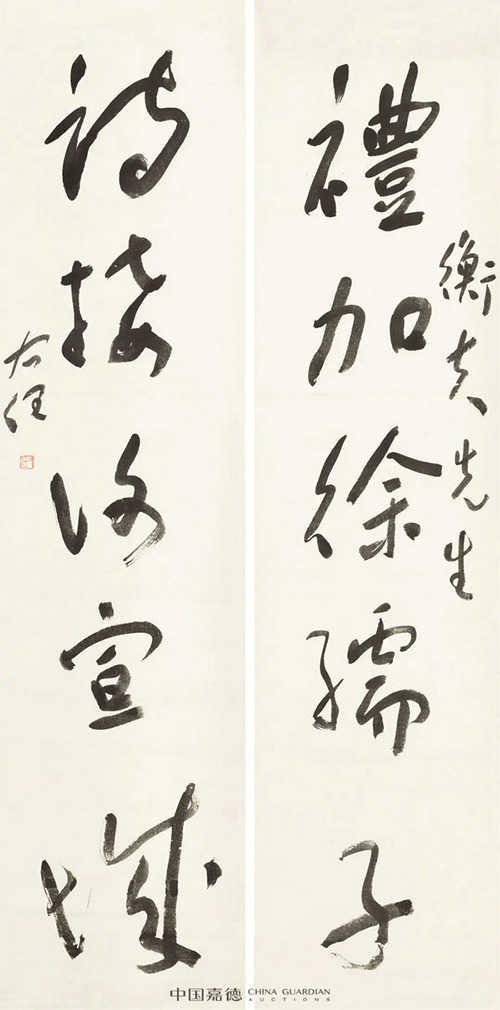 衡夫先生
禮加徐孺子
詩接謝宣城
右任
中国嘉德 CHINA GUARDIAN
AUCTIONS